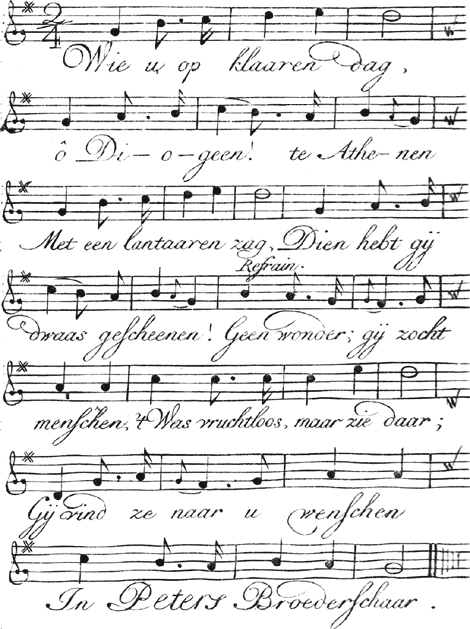 Wie u, op klaaren dag,
ô Di-o-geen! te Athe-nen
Met een lantaaren zag, Dien hebt gij
Refrain.
dwaas gescheenen! Geen wonder; gij zocht
menschen, 't Was vruchtloos, maar zie daar;
Gij vind ze naar u wenschen
In Peters Broederschaar.